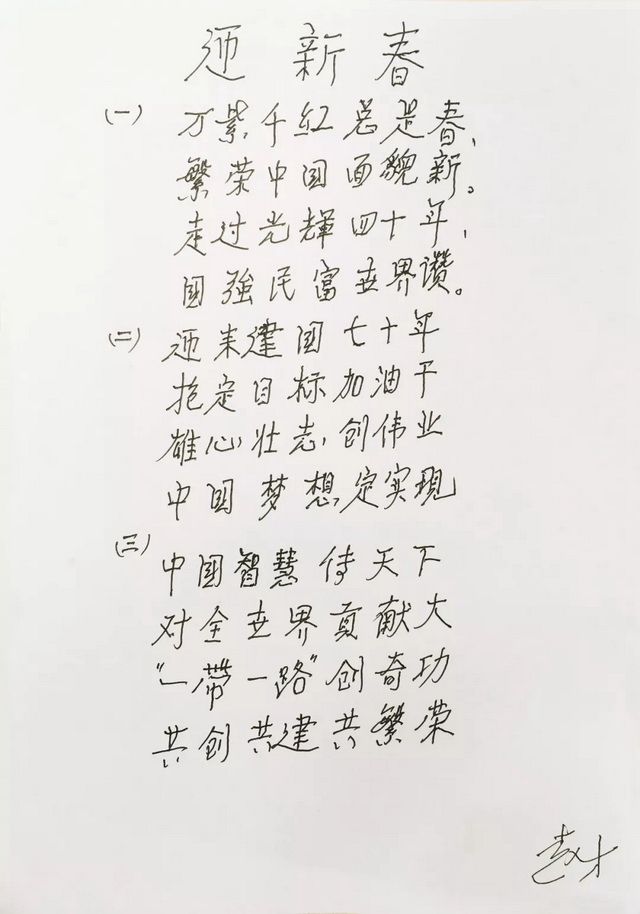 迎新春
(一)
万紫千红总是春,
繁荣中国面貌新。
走过光輝四十年,
国強民富世界讚。
(二)
迎来建国七十年
抱定目标加油干
雄心壮志创伟业
中国梦想定实現
(三)
中国智慧传天下
对全世界贡献大
"一带一路"创奇功
共创共建共繁荣